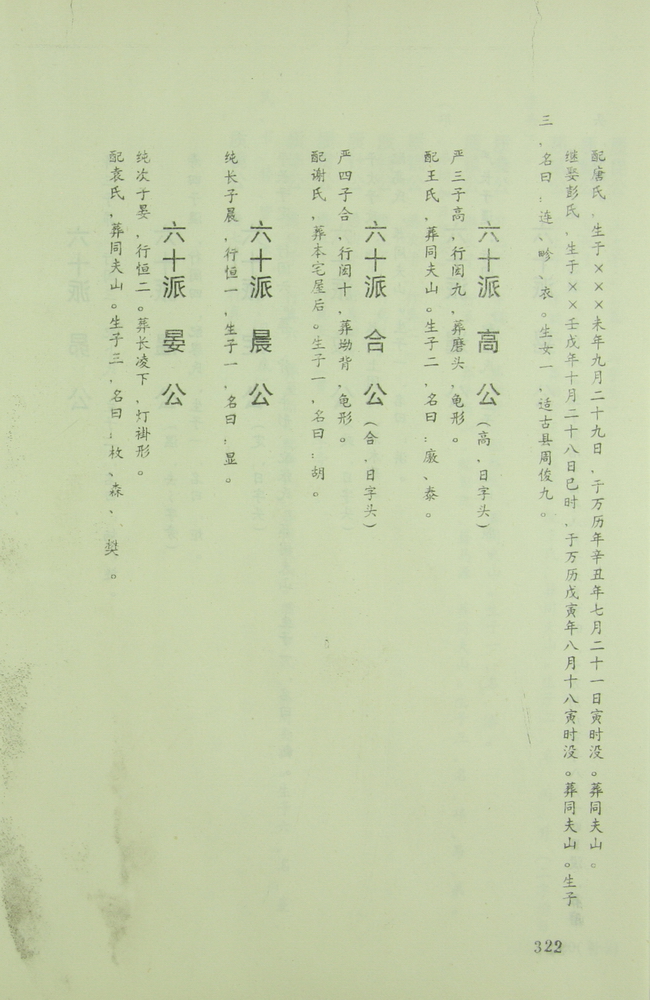 配唐氏,生于×××未年九月二十九日、于万历年辛丑年七月二十一日寅时没。葬同夫山。
继娶彭氏,生于××壬戌年十月二十八日巳时,于万历戊寅年八月十八寅时没。葬同夫山。生子
三,名曰:连、畛、衣。生女一,适古县周俊九。
六十派 高 公(高、日字头)
严三子高,行闵九,葬磨头,龟形。
配王氏,葬同夫山。生子二,名曰:廒、泰。
六十派 合 公(合、日字头)
严四子合,行闵十,葬坳背,龟形。
配谢氏,葬本宅屋后。生子一,名曰:胡。
六十派 晨 公
纯长子晨,行恒一,生子一,名曰:显。
六十派 晏 公
纯次子晏,行恒二。葬长凌下,灯褂形。
配袁氏,葬同夫山。生子三,名曰:枚、森、樊。
322